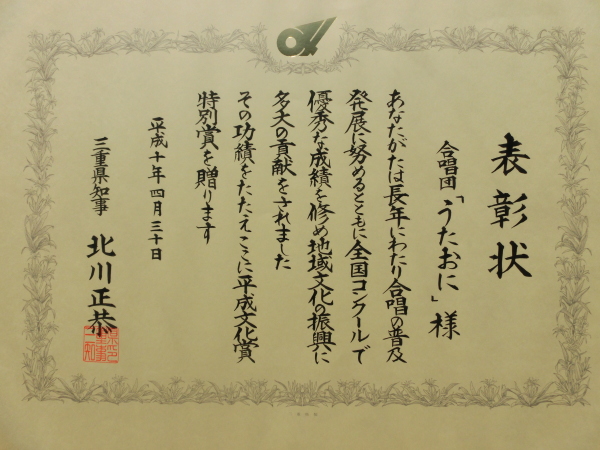 表彰状
合唱団「うたおに」様
あなたがたは長年にわたり合唱の普及
発展に努めるとともに全国コンクールで
優秀な成績を修め地域文化の振興に
多大の貢献をされました
その功績をたたえここに平成文化賞
特別賞を贈ります
平成十年四月三十日
三重県知事 北川正恭